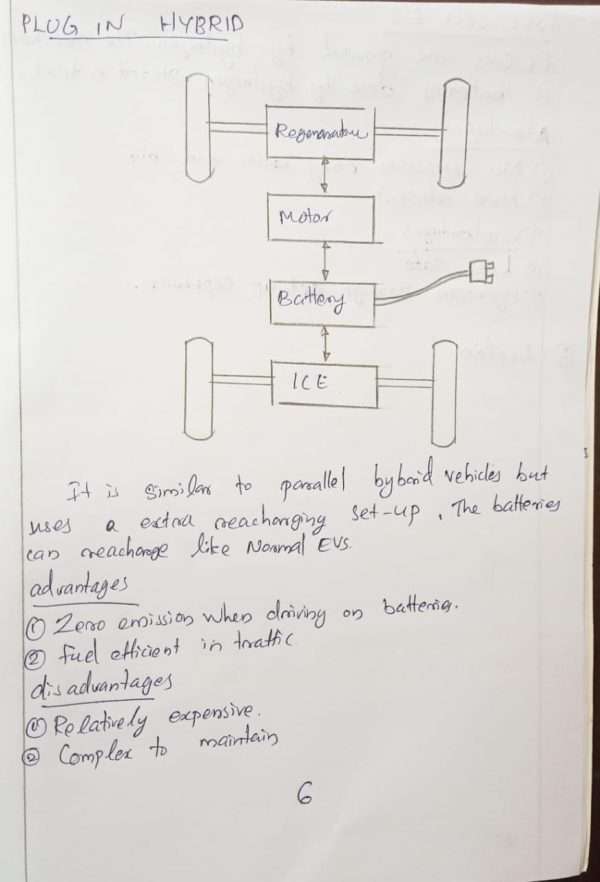 PLUG IN HYBRID
Regenerative
Motor
Battery
ICE
It is similar to parallel hybrid vehicles but
uses a extra reacharging set-up, The batteries
can reacharge like Normal EVS.
advantages
① Zero emission when driving on batteries.
② fuel efficient in traffic
disadvantages
① Relatively expensive.
② Complex to maintain
6